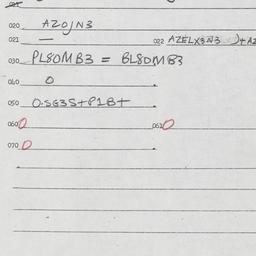 020 AZOJN3
021 —
022 AZELX3N3
030 PL8OMB3 = BL8DMB3
040 0
050 O.SG3S+P1B+
060 0 061 0
070 0